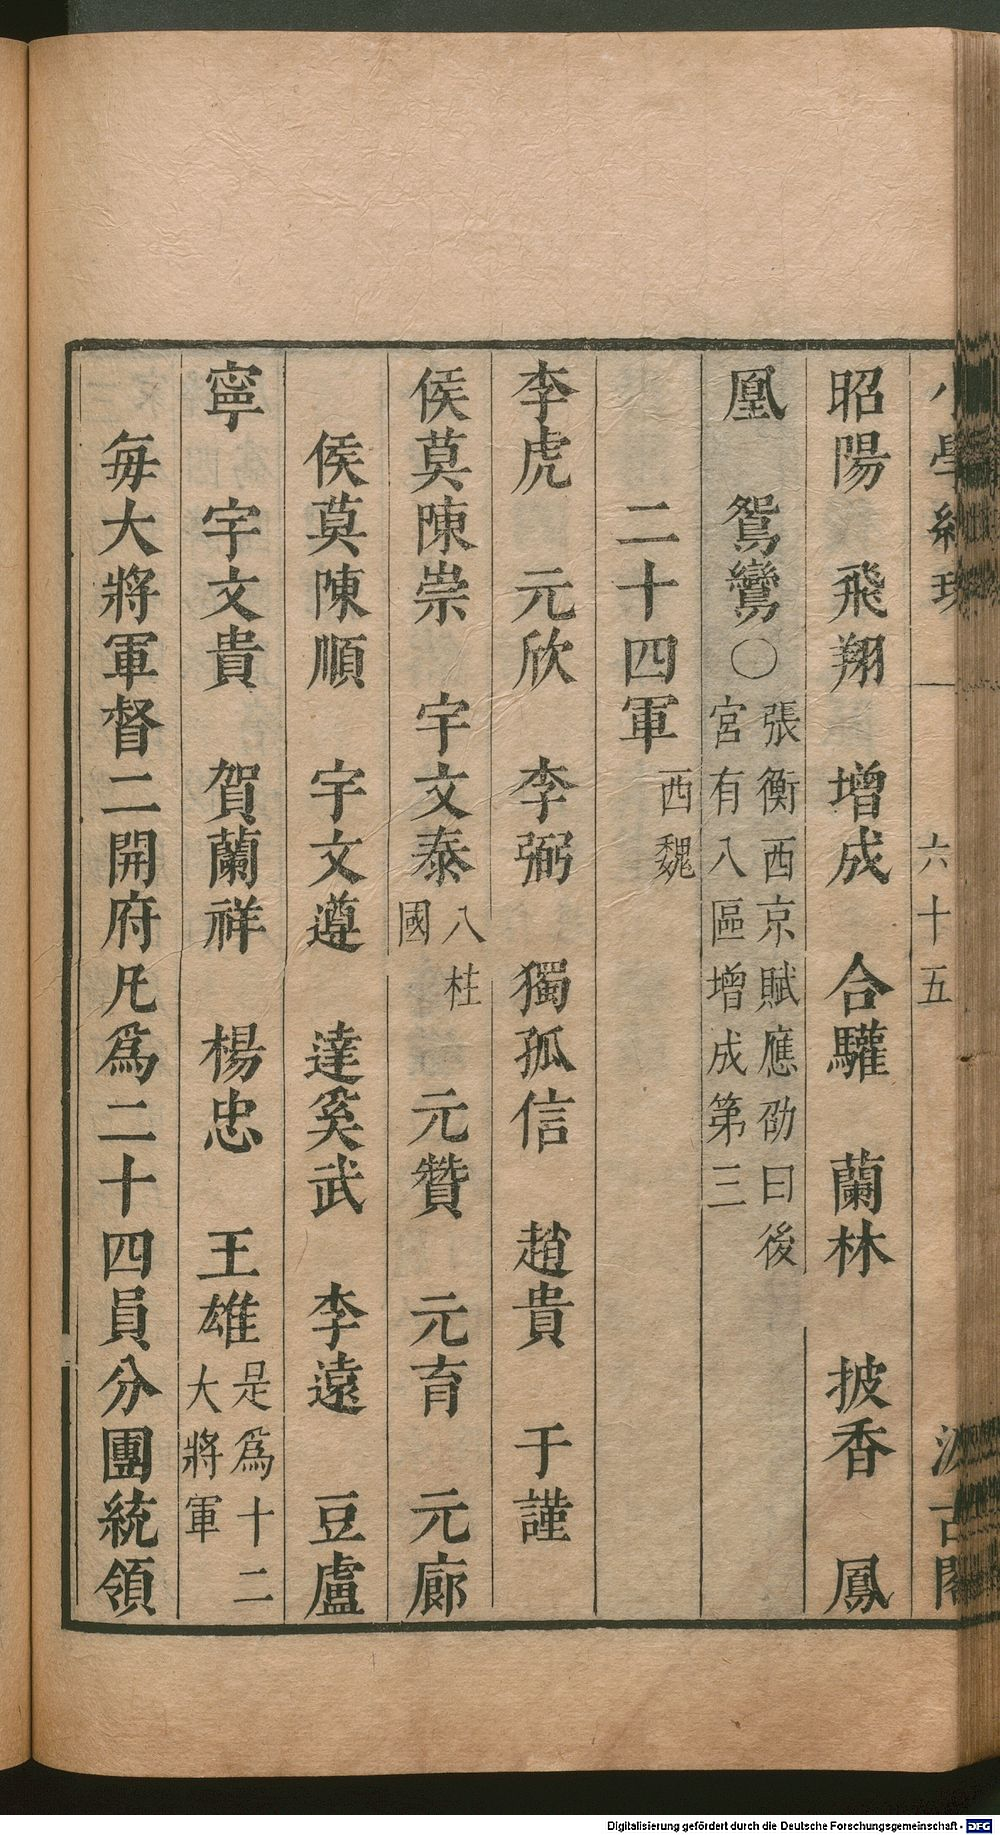 小學紺珠 六十五 汲古閣
昭陽 飛翔 增成 合驩 蘭林 披香 鳳
凰 鴛鸞〇張衡西京賦應劭曰後
宮有八區增成第三
二十四軍西魏
李虎 元欣 李弼 獨孤信 趙貴 于謹
侯莫陳崇 宇文泰八柱
國 元贊 元育 元廓
侯莫陳順 宇文遵 達奚武 李遠 豆盧
寧 宇文貴 賀蘭祥 楊忠 王雄是爲十二
大將軍
每大將軍督二開府凡爲二十四員分團統領
Digitalisierung gefördert durch die Deutsche Forschungsgemeinschaft - DFG